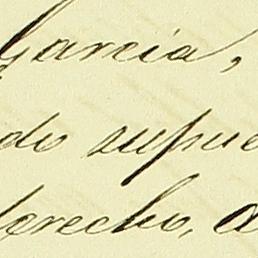 Garcia,
do supue
derecho, a